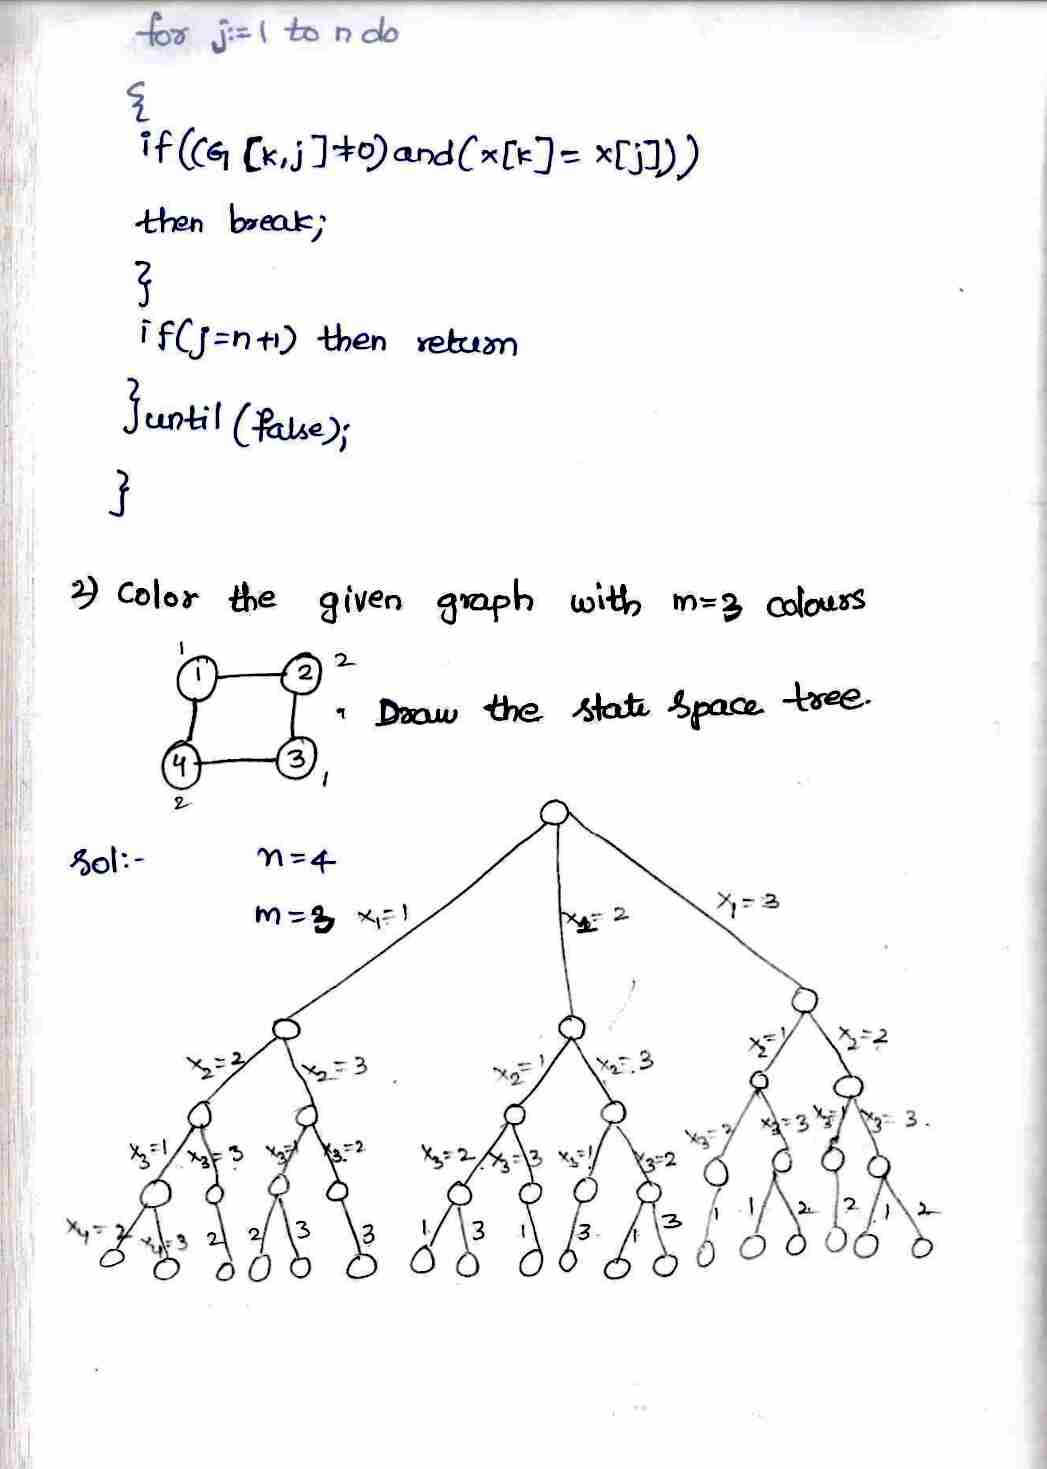 for j:=1 to n do
{
if((G [k,j]≠0)and(x[k]= x[j]))
then break;
}
if(j=n+1) then return
}until (false);
}
2) Color the given graph with m=3 colours
1
1 2 2
, Draw the state space tree.
4 3 1
2
Sol:- n=4
m=3 x₁=1 = 2 x₁=3
x₂=2 x₂=3 x₂=1 x₂=3 x₂=1 x₂=2
x₃=1 x₃=3 x₃=1 x₃=2 x₃=2 x₃=3 x₃=1 x₃=2 x₃=2 x₃=3 x₃=1 x₃=3.
x₄=2 x₄=3 2 2 3 3 1 3 1 3 1 3 1 1 2 2 1 2